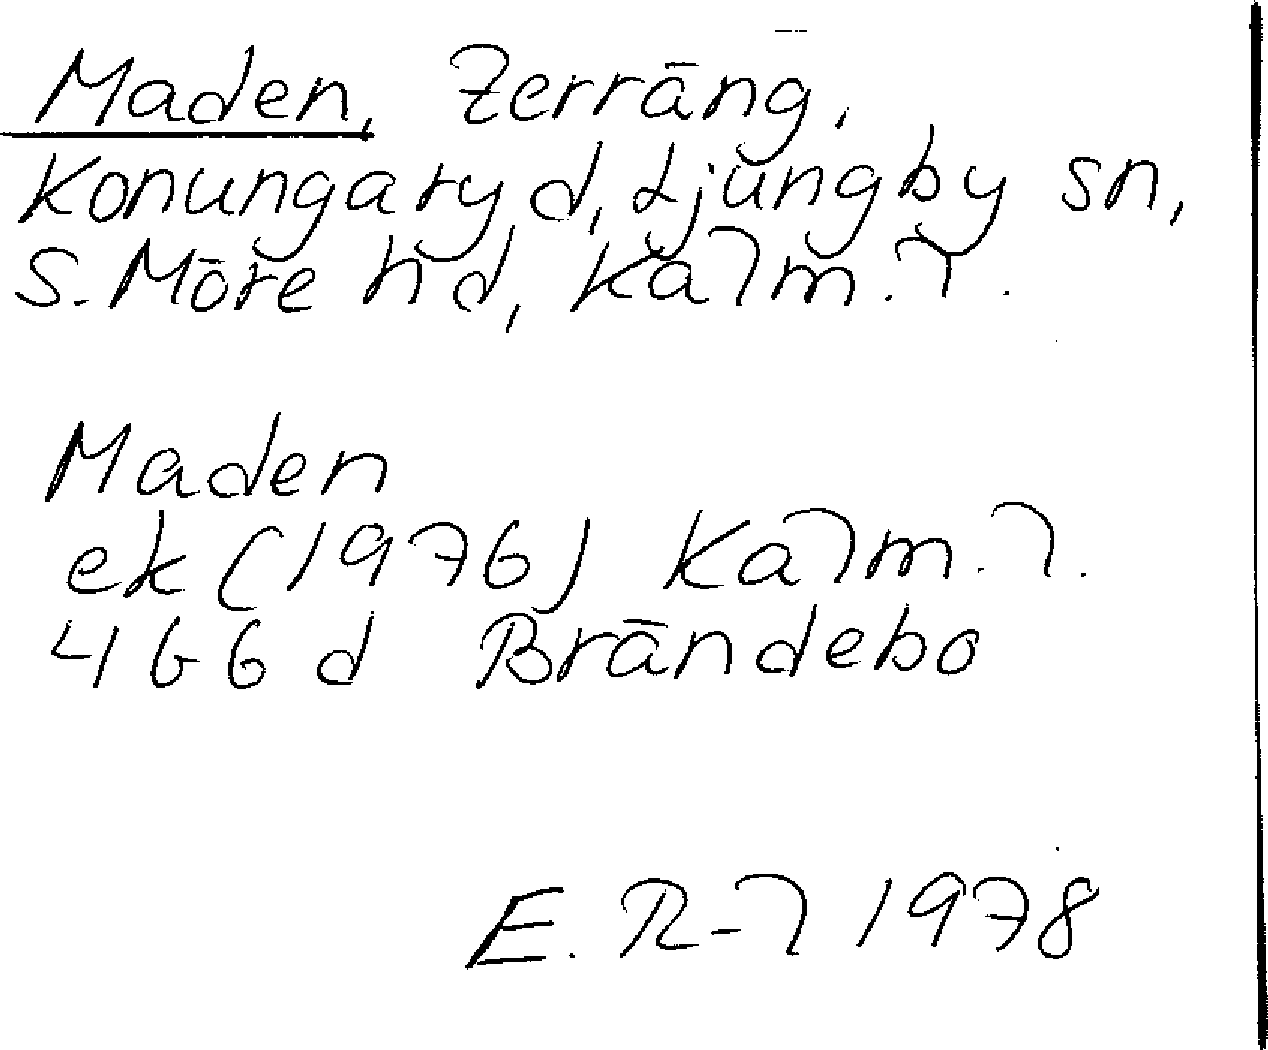 Maden, Terräng,
Konungaryd, Ljungby sn,
S. Möre hd, Kalm. l.
Maden
ek (1976) Kalm. l.
4 G 6 d Brändebo
E. R-l 1978